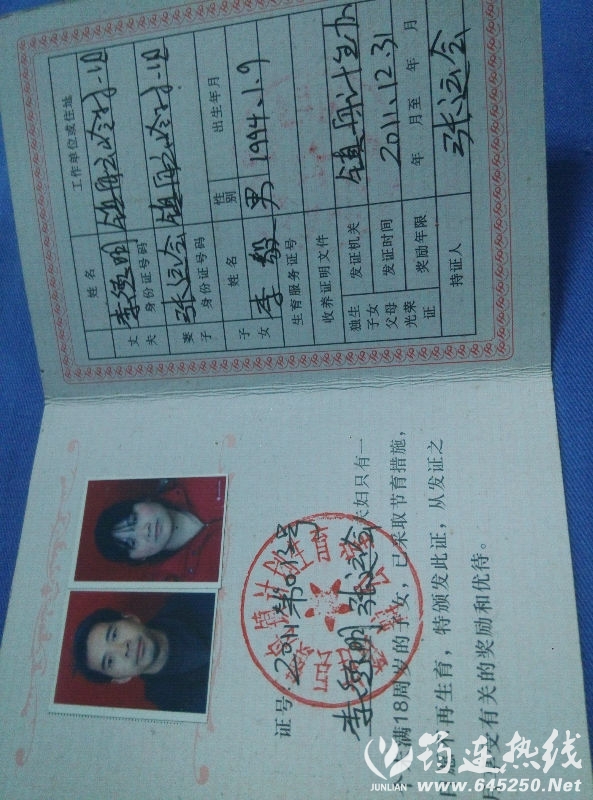 姓名 工作单位或住址
丈夫 李德明 镇舟云岭村一组
身份证号码
妻子 张运会 镇舟云岭村一组
身份证号码
子女 姓名 性别 出生年月
李毅 男 1994.1.9
生育服务证号
收养证明文件
独生子女父母光荣证 发证机关 镇舟计生办
发证时间 2011.12.31
奖励年限 年 月至 年 月
持证人 张运会
证号:2011第012号
李德明 张运会 夫妇只有一
满18周岁的子女,已采取节育措施,
不再生育,特颁发此证,从发证之
享受有关的奖励和优待。
筠连热线
JUNLIAN www.645250.Net